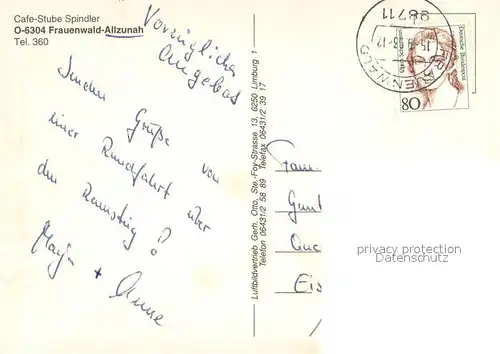 Cafe-Stube Spindler
O-6304 Frauenwald-Allzunah
Tel. 360
Vorzügliches
Angebot
Grüße von
einer Rundfahrt über
den Rennsteig!
+ Anne
Luftbildvertrieb Gerh. Otto, Ste.-Foy-Strasse 13, 6250 Limburg 1
Telefon 06431/2 58 89 Telefax 06431/2 39 17
98711
FRAUENWALD
Deutsche Bundespost
80
Fam.
privacy protection
Datenschutz